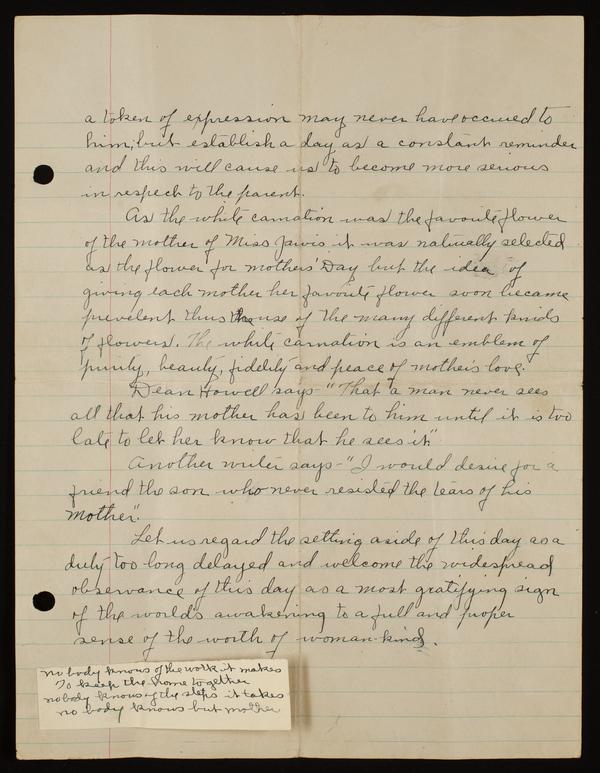 a token of expression may never have occured to
him; but establish a day as a constant reminder
and this will cause us to become more serious
in respect to the parent.
As the white carnation was the favorite flower
of the mother of Miss Jarvis it was naturally selected
as the flower for mothers' Day but the idea of
giving each mother her favorite flower soon became
prevelent thus the use of the many different kinds
of flowers. The white carnation is an emblem of
purity, beauty, fidelity and peace of mother's love.
Dean Howell says - "That a man never sees
all that his mother has been to him until it is too
late to let her know that he sees it."
Another writer says - "I would desire for a
friend the son who never resisted the tears of his
mother".
Let us regard the setting aside of this day as a
duty too long delayed and welcome the widespread
observance of this day as a most gratifying sign
of the worlds awakening to a full and proper
sense of the worth of woman-kind.
no body knows of the work it makes
To keep the home together
nobody knows of the steps it takes
no body knows but mother